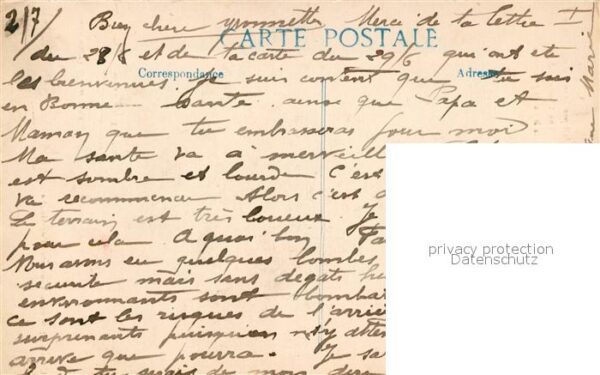 2/7
Bien chère Yvonnette Merci de ta lettre
CARTE POSTALE
du 28/6 et de ta carte du 29/6 qui ont été
Correspondance Adresse
les bienvenues. Je suis content que tu sois
en Bonne santé ainsi que Papa et
Maman que tu embrasseras pour moi
Ma santé va à merveille
est sombre et lourde C'est
va recommence Alors c'est
Le terrain est très boueux. Je
pour cela A quoi bon
Nous avons eu quelques bombes
sécurité mais sans dégats
environnants sont bomba
ce sont les risques de l'arriè
surprenants puisqu'on s'y atten
arrive que pourra. Je
tu serais de mon
Marie
privacy protection
Datenschutz